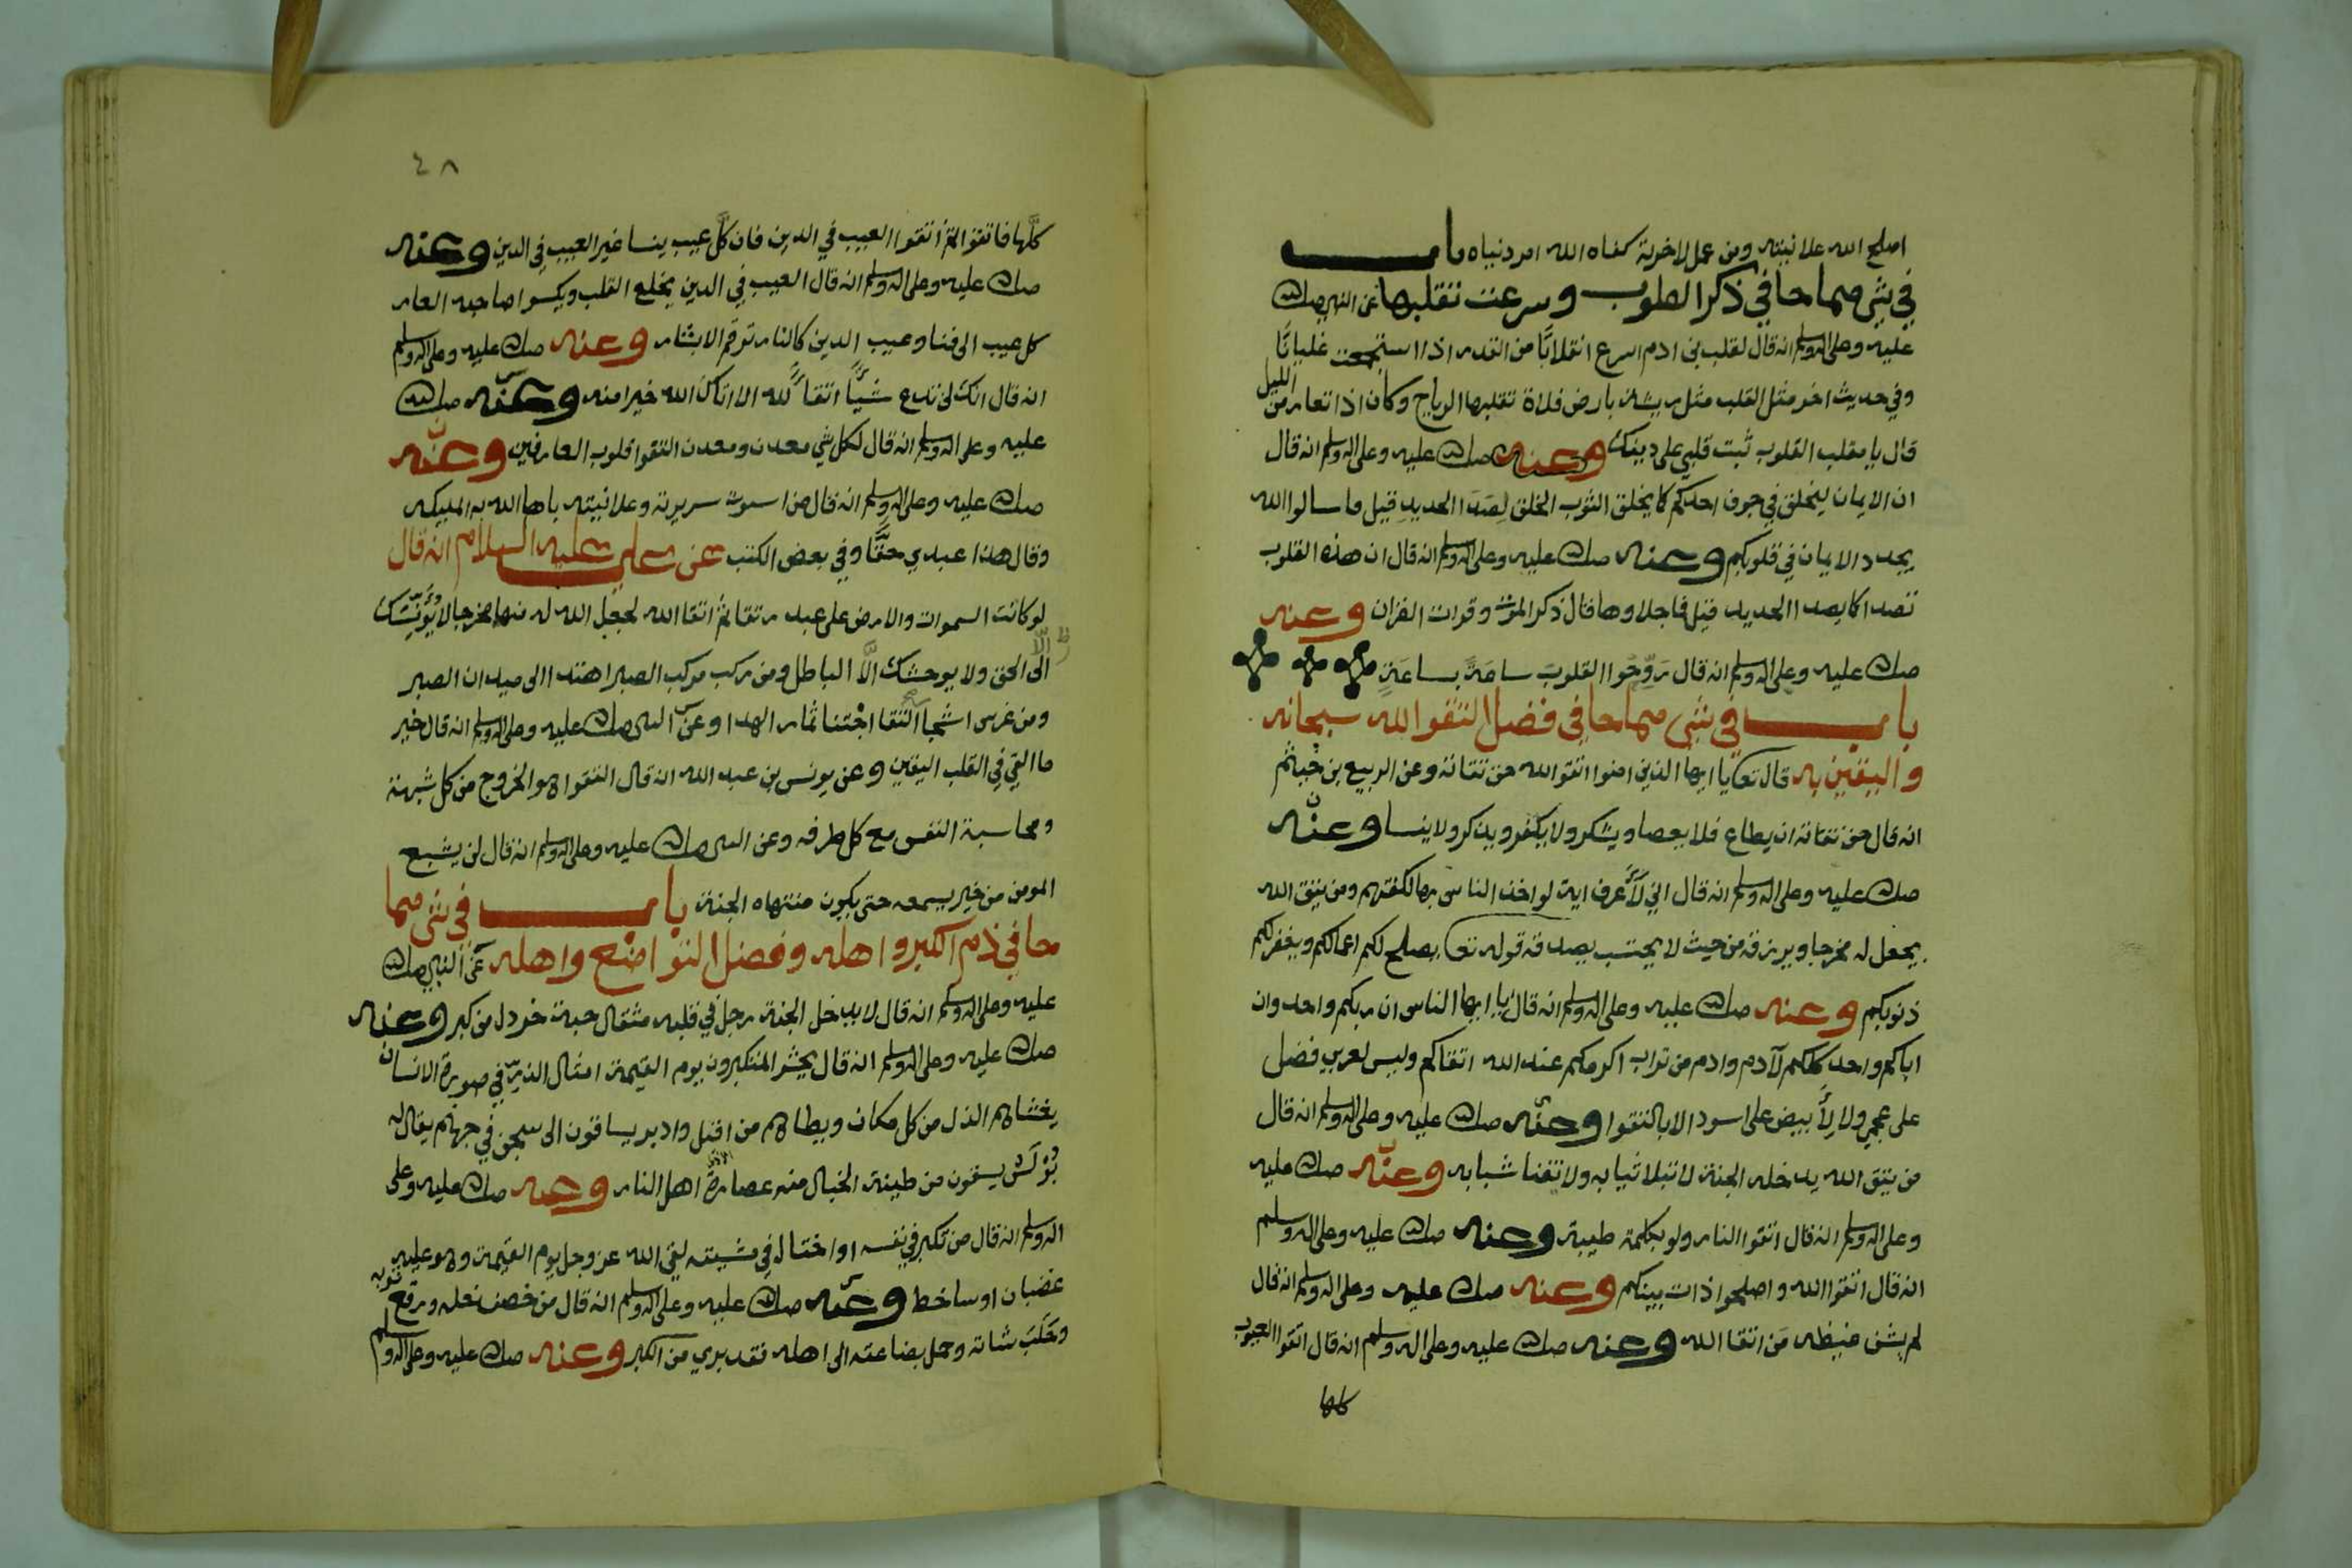 اصلح الله علانيته ومن عمل لاخرته كفاه الله امر دنياه باب
في شي مما جا في ذكر القلوب وسرعت تقلبها عن النبي صلى الله
عليه وعلى اله وسلم انه قال لقلب بن ادم اسرع انقلابًا من القدر اذا استجمعت غليانًا
وفي حديث اخر مثل القلب مثل ريشة بارض فلاة تقلبها الرياح وكان اذا تعار من الليل
قال يا مقلب القلوب ثبت قلبي على دينك وعنه صلى الله عليه وعلى اله وسلم انه قال
ان الايمان ليخلق في جوف احدكم كما يخلق الثوب الخلق لصدا الحديد قيل ما سالوا الله
يجدد الايمان في قلوبكم وعنه صلى الله عليه وعلى اله وسلم انه قال ان هذه القلوب
تصدا كما يصدا الحديد قيل فما جلاوها قال ذكر الموت وقرات القران وعنه
صلى الله عليه وعلى اله وسلم انه قال رَوِّحُوا القلوب ساعَةً بساعَةٍ
باب في شي مما جا في فضل التقوا لله سبحانه
واليقين به قال تعا يا ايها الذين امنوا اتقوا الله حق تقاته وعن الربيع بن خيثم
انه قال حق تقاته ان يطاع فلا يعصا ويشكر ولا يكفر ويذكر ولا ينسا وعنه
صلى الله عليه وعلى اله وسلم انه قال اني لأعرف اية لو اخذ الناس بها لكفتهم ومن يتق الله
يجعل له مخرجا ويرزقه من حيث لا يحتسب يصدقه قوله تعا يصلح لكم اعمالكم ويغفر لكم
ذنوبكم وعنه صلى الله عليه وعلى اله وسلم انه قال يا ايها الناس ان ربكم واحد وان
اباكم واحد كلكم لآدم وادم من تراب اكرمكم عند الله اتقاكم وليس لعربي فضل
على عجمي ولا لأبيض على اسود الا بالتقوا وعنه صلى الله عليه وعلى اله وسلم انه قال
من يتق الله يدخله الجنة لا تبلا ثيابه ولا تفنا شبابه وعنه صلى الله عليه
وعلى اله وسلم انه قال اتقوا النار ولو بكلمة طيبة وعنه صلى الله عليه وعلى اله وسلم
انه قال اتقوا الله واصلحوا ذات بينكم وعنه صلى الله عليه وعلى اله وسلم انه قال
لم يشف غيظه مَن اتقا الله وعنه صلى الله عليه وعلى اله وسلم انه قال اتقوا العيوب
كلها
٤٨
كلَّها فاتقوا ثم اتقوا العيب في الدين فان كلَّ عيب ينسا غير العيب في الدين وعنه
صلى الله عليه وعلى اله وسلم انه قال العيب في الدين يخلع القلب ويكسوا صاحبه العار
كل عيب الى فنا وعيب الدين كالنار توقم الابشار وعنه صلى الله عليه وعلى اله وسلم
انه قال انك لن تدع شيًا اتقاً لله الا اتاك الله خيرا منه وعنه صلى الله
عليه وعلى اله وسلم انه قال لكل شي معدن ومعدن التقوا قلوب العارفين وعنه
صلى الله عليه وعلى اله وسلم انه قال من استوت سريرته وعلانيته باها الله به المليكه
وقال هذا عبدي حقًّا وفي بعض الكتب عن علي عليه السلام انه قال
لو كانت السموات والارض على عبد رتقا ثم اتقا الله لجعل الله له منها مخرجا لا يؤنسك
الا الحق ولا يوحشك الَّا الباطل ومن ركب مركب الصبر اهتدا الى ميدان الصبر
ومن غرس اشجا التقا اجتنا ثمار الهدا وعن النبي صلى الله عليه وعلى اله وسلم انه قال خير
ما القي في القلب اليقين وعن يونس بن عبد الله انه قال التقوا هو الخروج من كل شبهة
ومحاسبة النفس مع كل طرفه وعن النبي صلى الله عليه وعلى اله وسلم انه قال لن يشبع
المومن من خير يسمعه حتى يكون منتهاه الجنة باب في شي مما
جا في ذم الكبر واهله وفضل التواضع واهله عن النبي صلى الله
عليه وعلى اله وسلم انه قال لا يدخل الجنة رجل في قلبه مثقال حبة خردل من كبر وعنه
صلى الله عليه وعلى اله وسلم انه قال يحشر المتكبرون يوم القيمة امثال الذر في صورة الانسان
يغشاهم الذل من كل مكان ويطاهم من اقبل وادبر يساقون الى سجن في جهنم يقال له
بُوْلَسْ يسقون من طينة الخبال منه عصارة اهل النار وعنه صلى الله عليه وعلى
اله وسلم انه قال من تكبر في نفسه او اختال في مشيته لقي الله عز وجل يوم القيمة وهو عليه
غضبان او ساخط وعنه صلى الله عليه وعلى اله وسلم انه قال من خصف نعله ورقع ثوبه
وحَلَبَ شاته وحمل بضاعته الى اهله فقد بري من الكبر وعنه صلى الله عليه وعلى اله وسلم